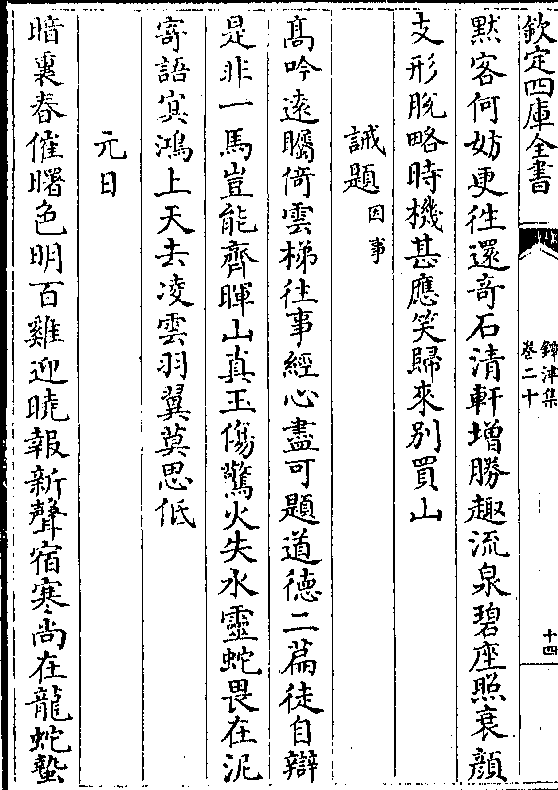 欽定四庫全書
鐔津集
卷二十
十四
黙客何妨更徃還竒石清軒増勝趣流泉碧座照衰顔
支形脱略時機甚應笑歸來别買山
誡題因事
髙吟逺矚倚雲梯徃事經心盡可題道徳二篇徒自辯
是非一馬豈能齊暉山真玉傷驚火失水靈蛇畏在泥
寄語㝠鴻上天去凌雲羽翼莫思低
元日
暗裏春催曙色明百雞迎曉報新聲宿寒尚在龍蛇蟄